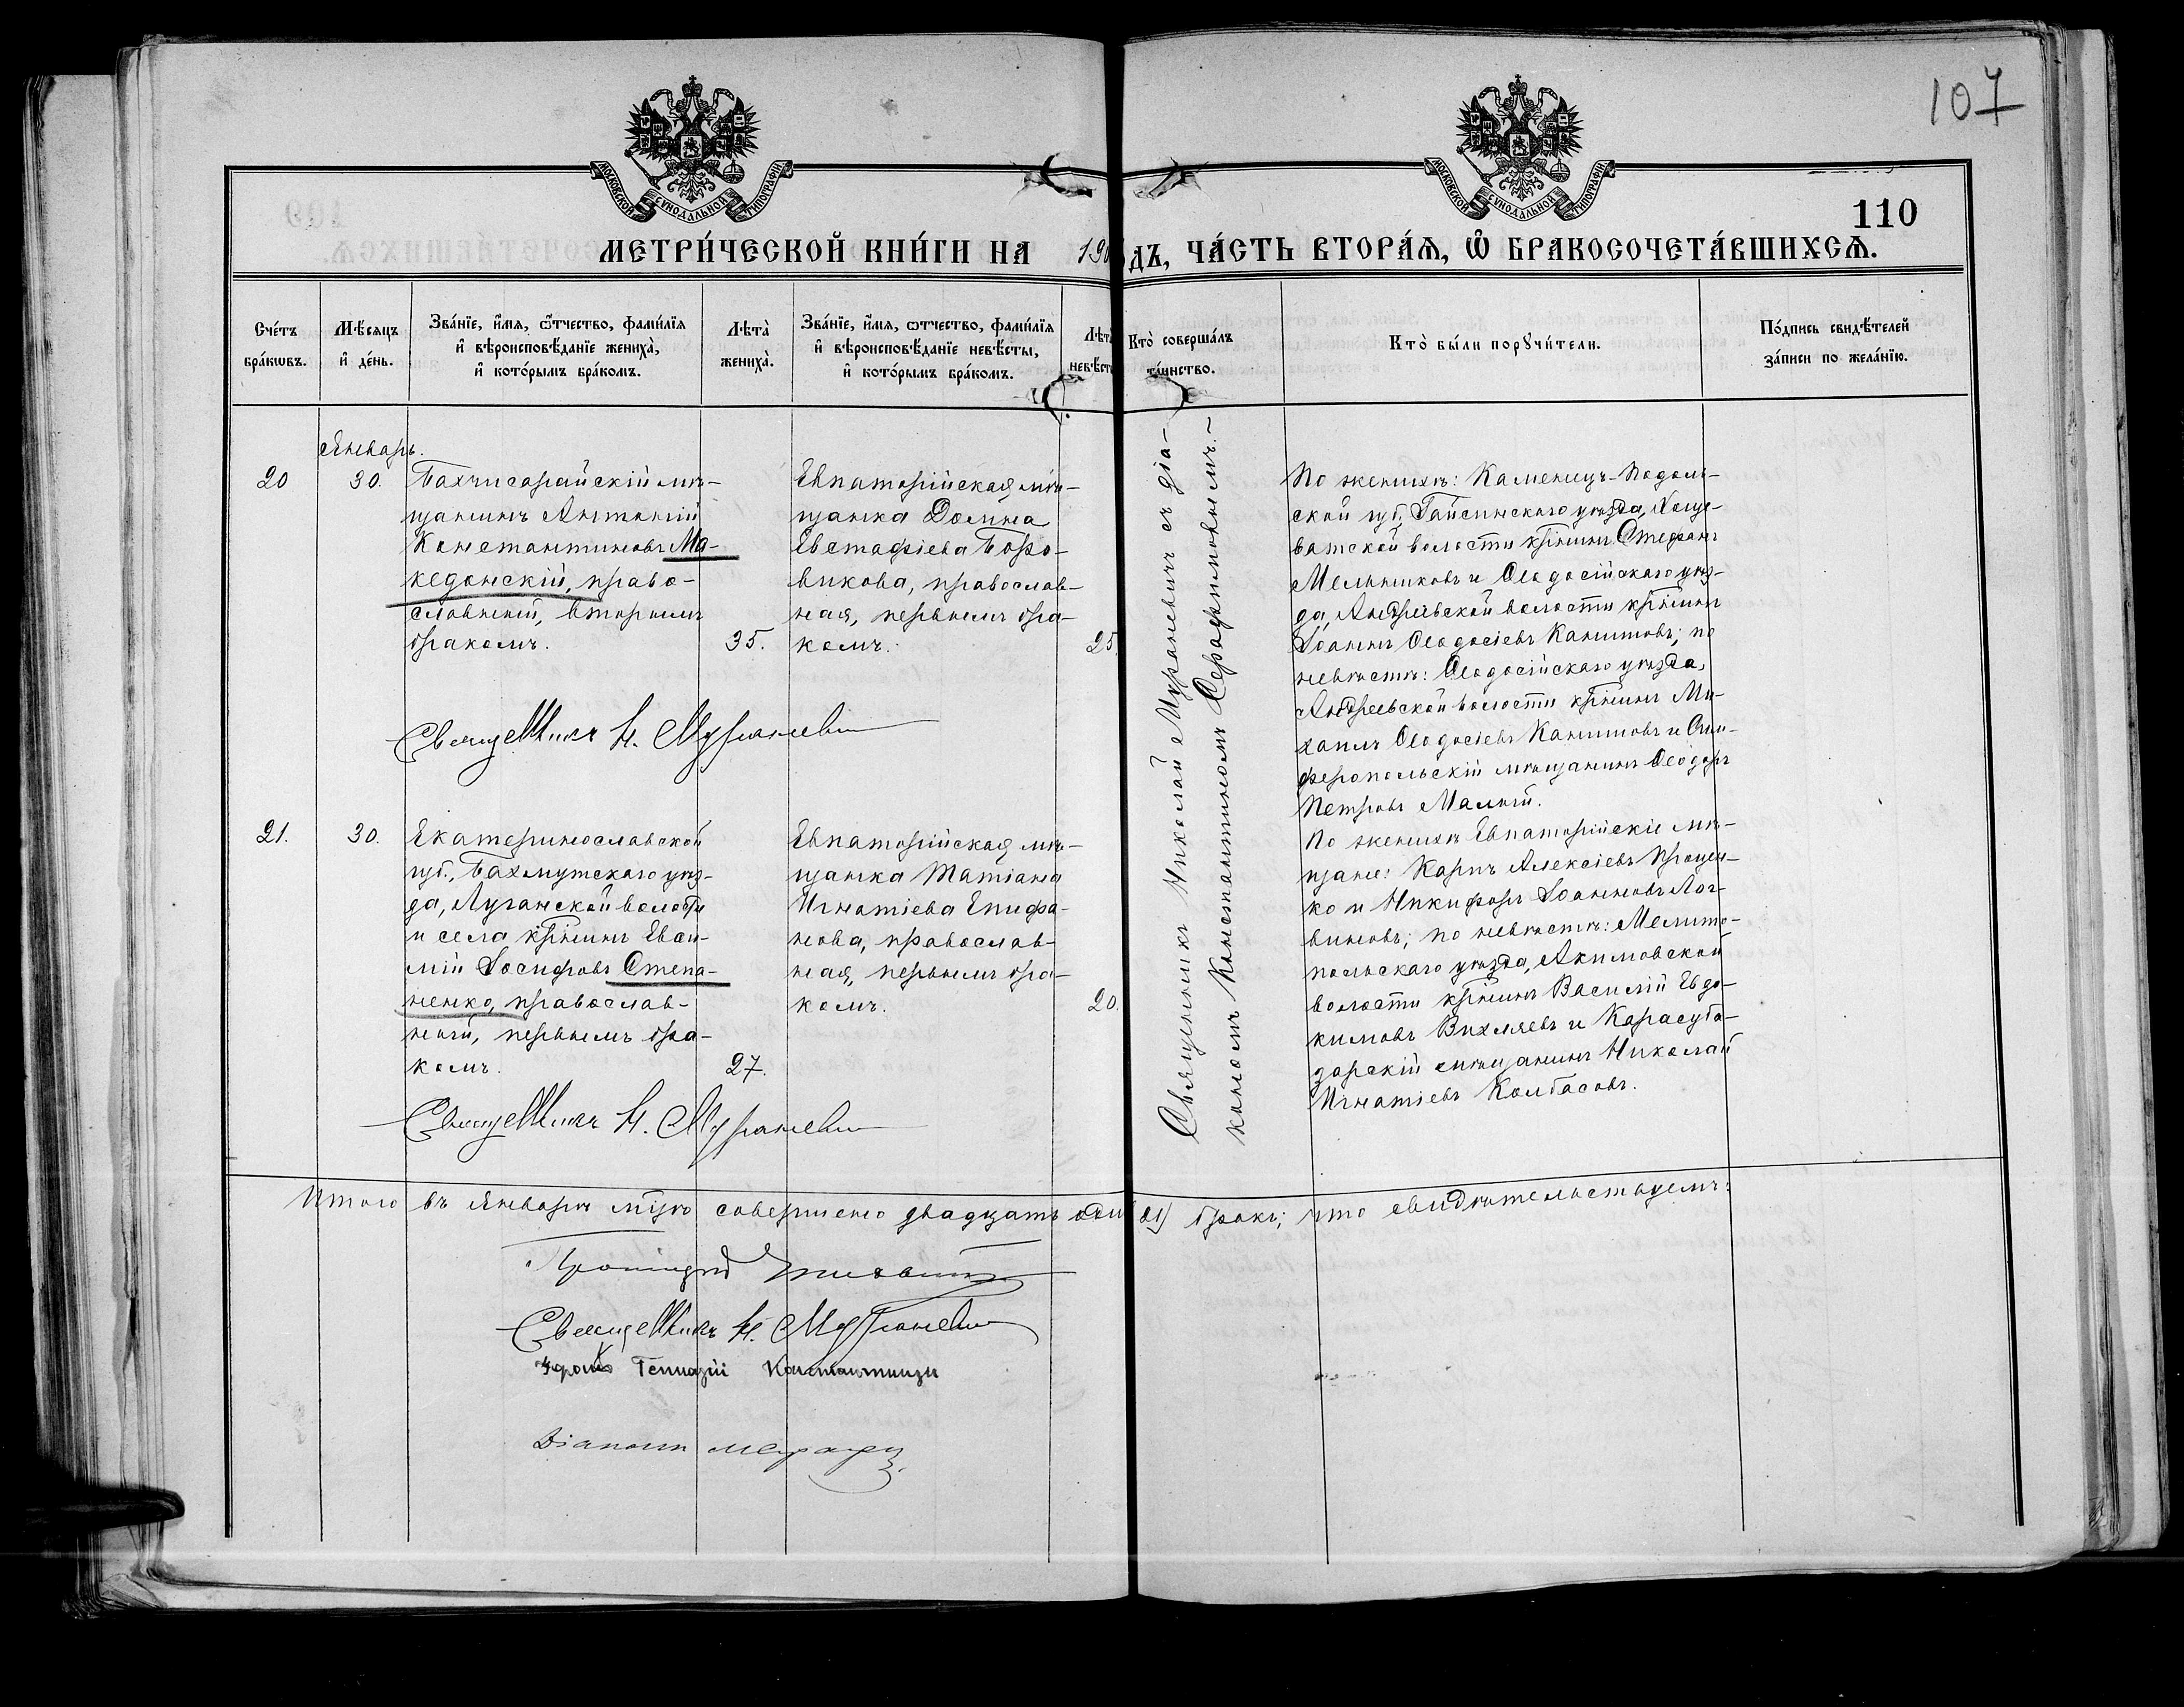 107
110
МОСКОВСКОЙ СѴНОДАЛЬНОЙ ТИПОГРАФІИ
МОСКОВСКОЙ СѴНОДАЛЬНОЙ ТИПОГРАФІИ
МЕТРИ́ЧЕСКОЙ КНИ́ГИ НА 190
ДЪ, ЧА́СТЬ ВТОРА́Я, Ѡ҆ БРАКОСОЧЕТА́ВШИХСѦ.
Сче́тъ
бра́кѡвъ.
Мѣ́сяцъ
и҆ де́нь.
Зва́нїе, и҆́мя, ѻ҆́тчество, фами́лїя
и҆ вѣроисповѣ́данїе жениха̀,
и҆ кото́рымъ бра́комъ.
Лѣта̀
жениха̀.
Зва́нїе, и҆́мя, ѻ҆́тчество, фами́лїя
и҆ вѣроисповѣ́данїе невѣ́сты,
и҆ кото́рымъ бра́комъ.
Лѣт
невѣст
Кто̀ соверша́лъ
та́инство.
Кто̀ бы́ли порꙋчи́тели.
По́дпись свидѣ́телей
за́писи по жела́нїю.
Январь.
20
30.
Бахчисарайскій мѣ-
щанинъ Антоній
Константиновъ Ма-
кедонскій, право-
славный, вторымъ
бракомъ.
35.
Евпаторійская мѣ-
щанка Домна
Евстафіева Боро-
викова, православ-
ная, первымъ бра-
комъ.
25.
Священникъ Николай Мураневичъ съ діа-
кономъ Константиномъ Серафимовымъ.-
По женихѣ: Каменецъ-Подоль-
ской губ., Гайсинскаго уѣзда, Хоще-
ватской волости крѣнинъ Стефанъ
Мельниковъ и Ѳеодосійскаго уѣз-
да, Андреевской волости крѣнинъ
Іоаннъ Ѳеодосіевъ Канитовъ; по
невѣстѣ: Ѳеодосійскаго уѣзда,
Андреевской волости крѣнинъ Ми-
хаилъ Ѳеодосіевъ Канитовъ и Сим-
феропольскій мѣщанинъ Ѳеодоръ
Петровъ Малый.
Священникъ Н. Мураневичъ
21.
30.
Екатеринославской
губ., Бахмутскаго уѣз-
да, Луганской волости
и села крѣнинъ Евѳи-
мій Іосифовъ Степа-
ненко, православ-
ный, первымъ бра-
комъ.
27.
Евпаторійская мѣ-
щанка Татіана
Игнатіева Епифа-
нова, православ-
ная, первымъ бра-
комъ.
20.
По женихѣ Евпаторійскіе мѣ-
щане: Карпъ Алексіевъ Процен-
ко и Никифоръ Іоанновъ Лог-
виновъ; по невѣстѣ: Мелито-
польскаго уѣзда, Акимовской
волости крѣнинъ Василій Евдо-
кимовъ Вихляевъ и Карасуба-
зарскій мѣщанинъ Николай
Игнатіевъ Колбасовъ.
Священникъ Н. Мураневичъ
Итого въ Январѣ мцѣ совершено двадцать оди 21) бракъ; что свидѣтельствуемъ:
Священникъ Н. Мураневичъ
Геннадій
Діаконъ